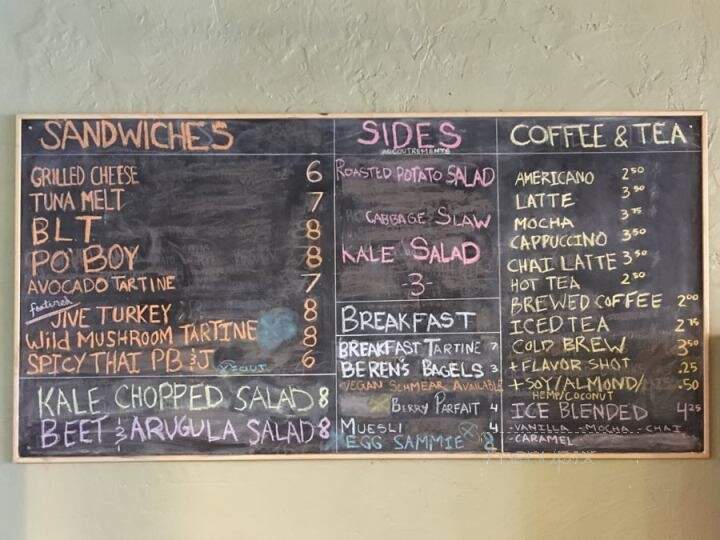 SANDWICHES
GRILLED CHEESE 6
TUNA MELT 7
BLT 8
PO' BOY 8
AVOCADO TARTINE 7
featured
JIVE TURKEY 8
Wild MUSHROOM TARTINE 8
SPICY THAI PB & J 6
KALE CHOPPED SALAD 8
BEET & ARUGULA SALAD 8
SIDES
ACCOUTREMENTS
ROASTED POTATO SALAD
CABBAGE SLAW
KALE SALAD
-3-
BREAKFAST
BREAKFAST TARTINE 7
BEREN'S BAGELS 3
VEGAN SCHMEAR AVAILABLE
BERRY PARFAIT 4
MUESLI 4
EGG SAMMIE 8
COFFEE & TEA
AMERICANO 2.50
LATTE 3.50
MOCHA 3.75
CAPPUCCINO 3.50
CHAI LATTE 3.50
HOT TEA 2.50
BREWED COFFEE 2.00
ICED TEA 2.75
COLD BREW 3.50
+ FLAVOR SHOT .25
+ SOY/ALMOND/ .50
HEMP/COCONUT
ICE BLENDED 4.25
-VANILLA -MOCHA -CHAI
-CARAMEL